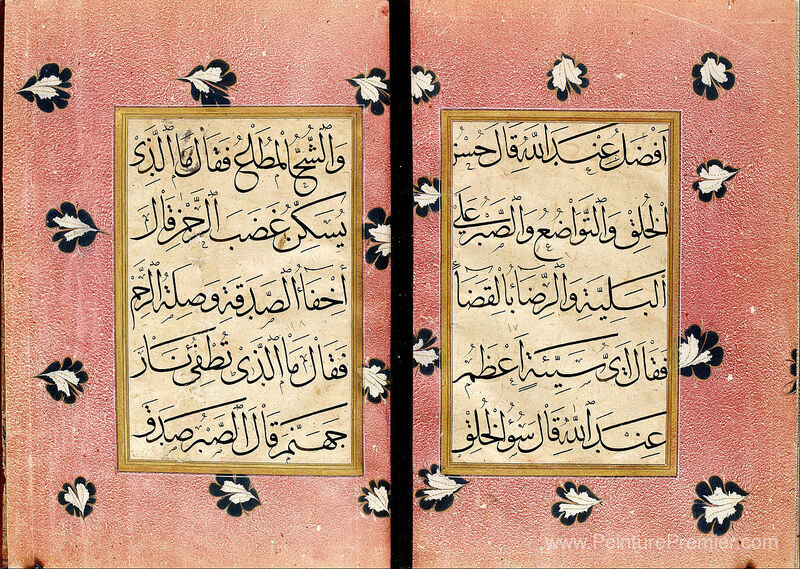 افضل عند الله قال حسن
الخلق والتواضع والصبر على
البلية والرضا بالقضا
فقال اى سيئة اعظم
عند الله قال سؤ الخلق
والشح المطاع فقال ما الذى
يسكن غضب الرحمن قال
أخفا الصدقة وصلة الرحم
فقال ما الذى تطفئ نار
جهنم قال الصبر صدق
www.PeinturePremier.com